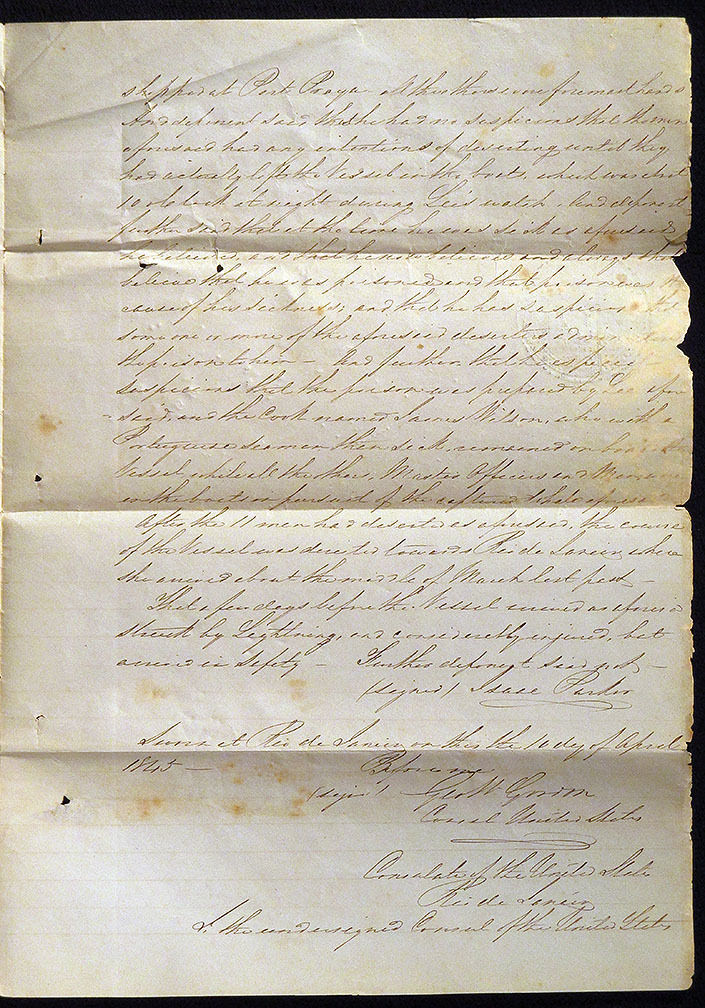 shipped at Port Praya - all the others were foremast hands
And deponent said, that he had no suspicions that the men
aforesaid had any intentions of deserting until they
had actually left the Vessel in the boats, which was about
10 o'clock at night during his watch. And deponent
further said that at the time he was sick as aforesaid
he believed, and that he now believes and always shall
believe that he was poisoned, and that poison was the
cause of his sickness; and that he has suspicions that
some one or more of the aforesaid deserters administered
the poison to him - And further, that he
suspicions that the poison was prepared by afore
said, and the Cook named James Wilson, who with a
Portuguese seaman then sick, remained on board the
Vessel while all the other, Master Officers and Men were
in the boats in pursuit of the captured whale aforesaid
After the 11 men had deserted as aforesaid, the course
of the Vessel was directed towards Rio de Janeiro, where
she arrived about the middle of March last past -
That a few days before the Vessel arrived as aforesaid
struck by Lightning, and considerably injured, but
arrived in safety - Further deponent said not -
(signed) Isaac Parker
Sworn at Rio de Janeiro on this the 10 day of April
1845 - Before me
(sign) Geo W. Gordon
Consul United States
Consulate of the United State
Rio de Janeiro
I, the undersigned Consul of the United States